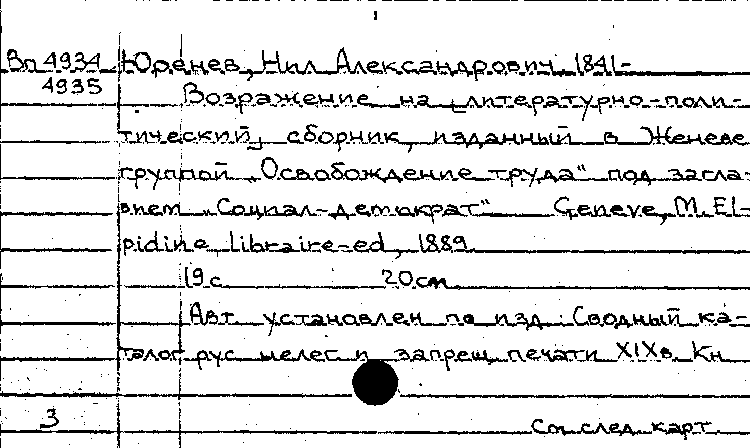 Вп 4934 Юренев, Нил Александрович, 1841-
4935 Возражение на [литературно-поли-
тический] сборник, изданный в Женеве
группой „Освобождение труда" под загла-
вием „Социал-демократ" Geneve, M. El-
pidine, libraire-ed, 1889.
19 с. 20 см.
Авт. установлен по изд.: Сводный ка-
талог рус. нелег. и запрещ. печати XIX в. Кн.
3 См. след. карт.